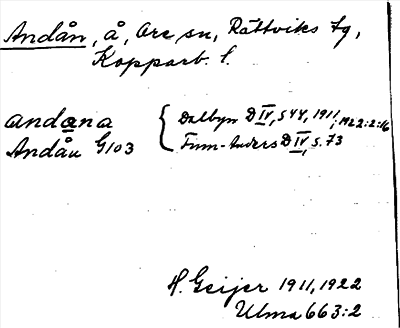 Andån, å, Ore sn, Rättviks tg,
Kopparb. l.
andana { Dalbyn D IV, s 44, 1911, M2 2:2:16
Andån G103 Finn-Anders D IV, s. 73
H. Geijer 1911, 1922
Ulma 663:2